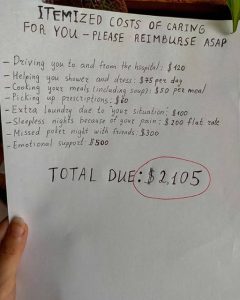 ITEMIZED COSTS OF CARING
FOR YOU – PLEASE REIMBURSE ASAP
– Driving you to and from the hospital: $120
– Helping you shower and dress: $75 per day
– Cooking your meals (including soup): $50 per meal
– Picking up prescriptions: $60
– Extra laundry due to your situation: $100
– Sleepless nights because of your pain: $200 flat rate
– Missed poker night with friends: $300
– Emotional support: $500
TOTAL DUE: $2,105